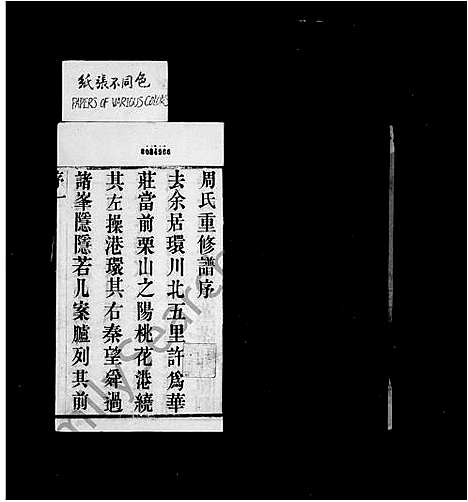 紙張不同色
PAPERS OF VARIOUS COLORS
8084966
周氏重修譜序
去余居環川北五里許爲華
莊當前栗山之陽桃花港繞
其左操港環其右秦望舜過
諸峯隱隱若几案臚列其前
序一